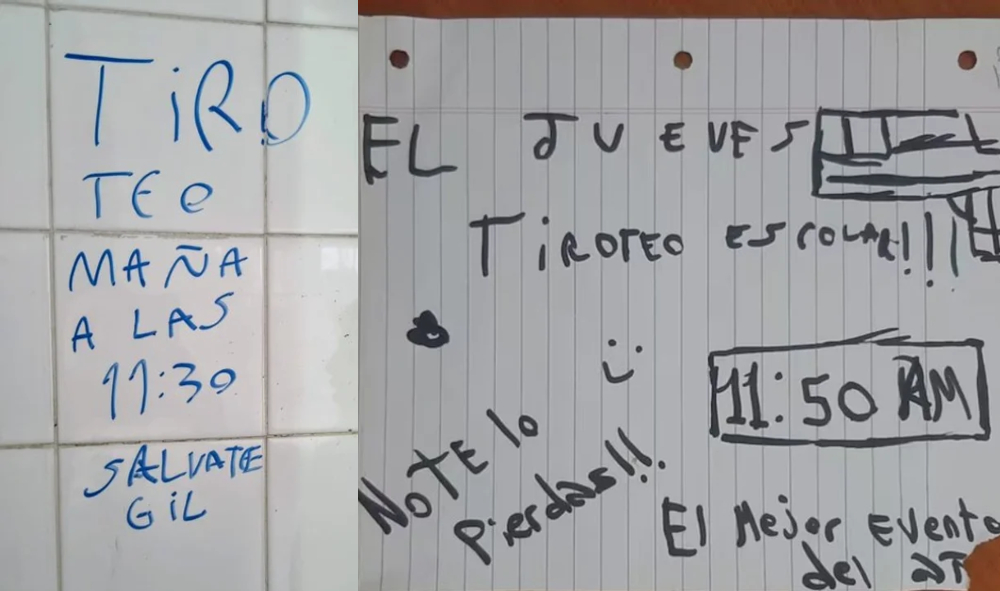 TiRO
TEO
MAÑA
A LAS
11:30
SALVATE
GIL
EL JUEVES
TiROTEO ESCOLAR!!!
11:50 AM
NO TE lo
pierdas!!.
El Mejor Evento
del